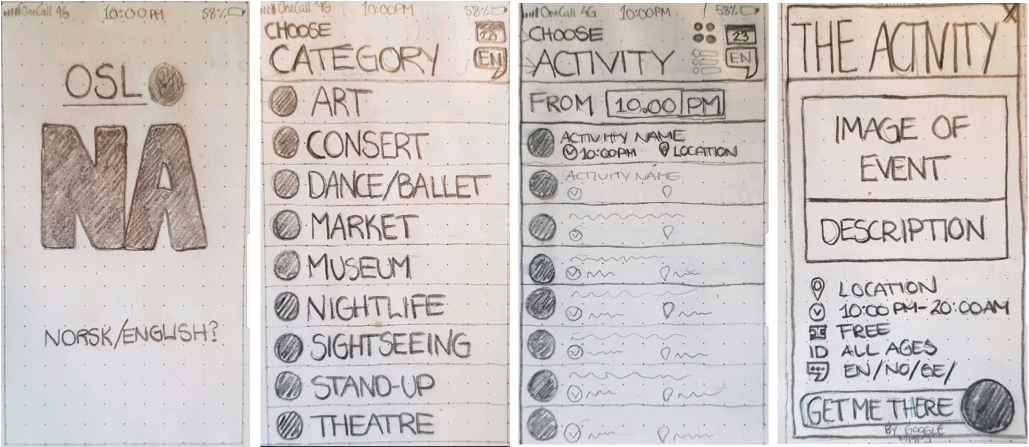 OneCall 4G 10:00PM 58%
OSLO
NA
NORSK/ENGLISH?
OneCall 4G 10:00PM 58%
CHOOSE
CATEGORY
23
EN
ART
CONSERT
DANCE/BALLET
MARKET
MUSEUM
NIGHTLIFE
SIGHTSEEING
STAND-UP
THEATRE
OneCall 4G 10:00PM 58%
CHOOSE
ACTIVITY
23
EN
FROM 10.00 PM
ACTIVITY NAME
10:00PM LOCATION
ACTIVITY NAME
X
THE ACTIVITY
IMAGE OF
EVENT
DESCRIPTION
LOCATION
10:00 PM-20:00AM
FREE
ID ALL AGES
EN/NO/SE/
GET ME THERE
BY GOOGLE